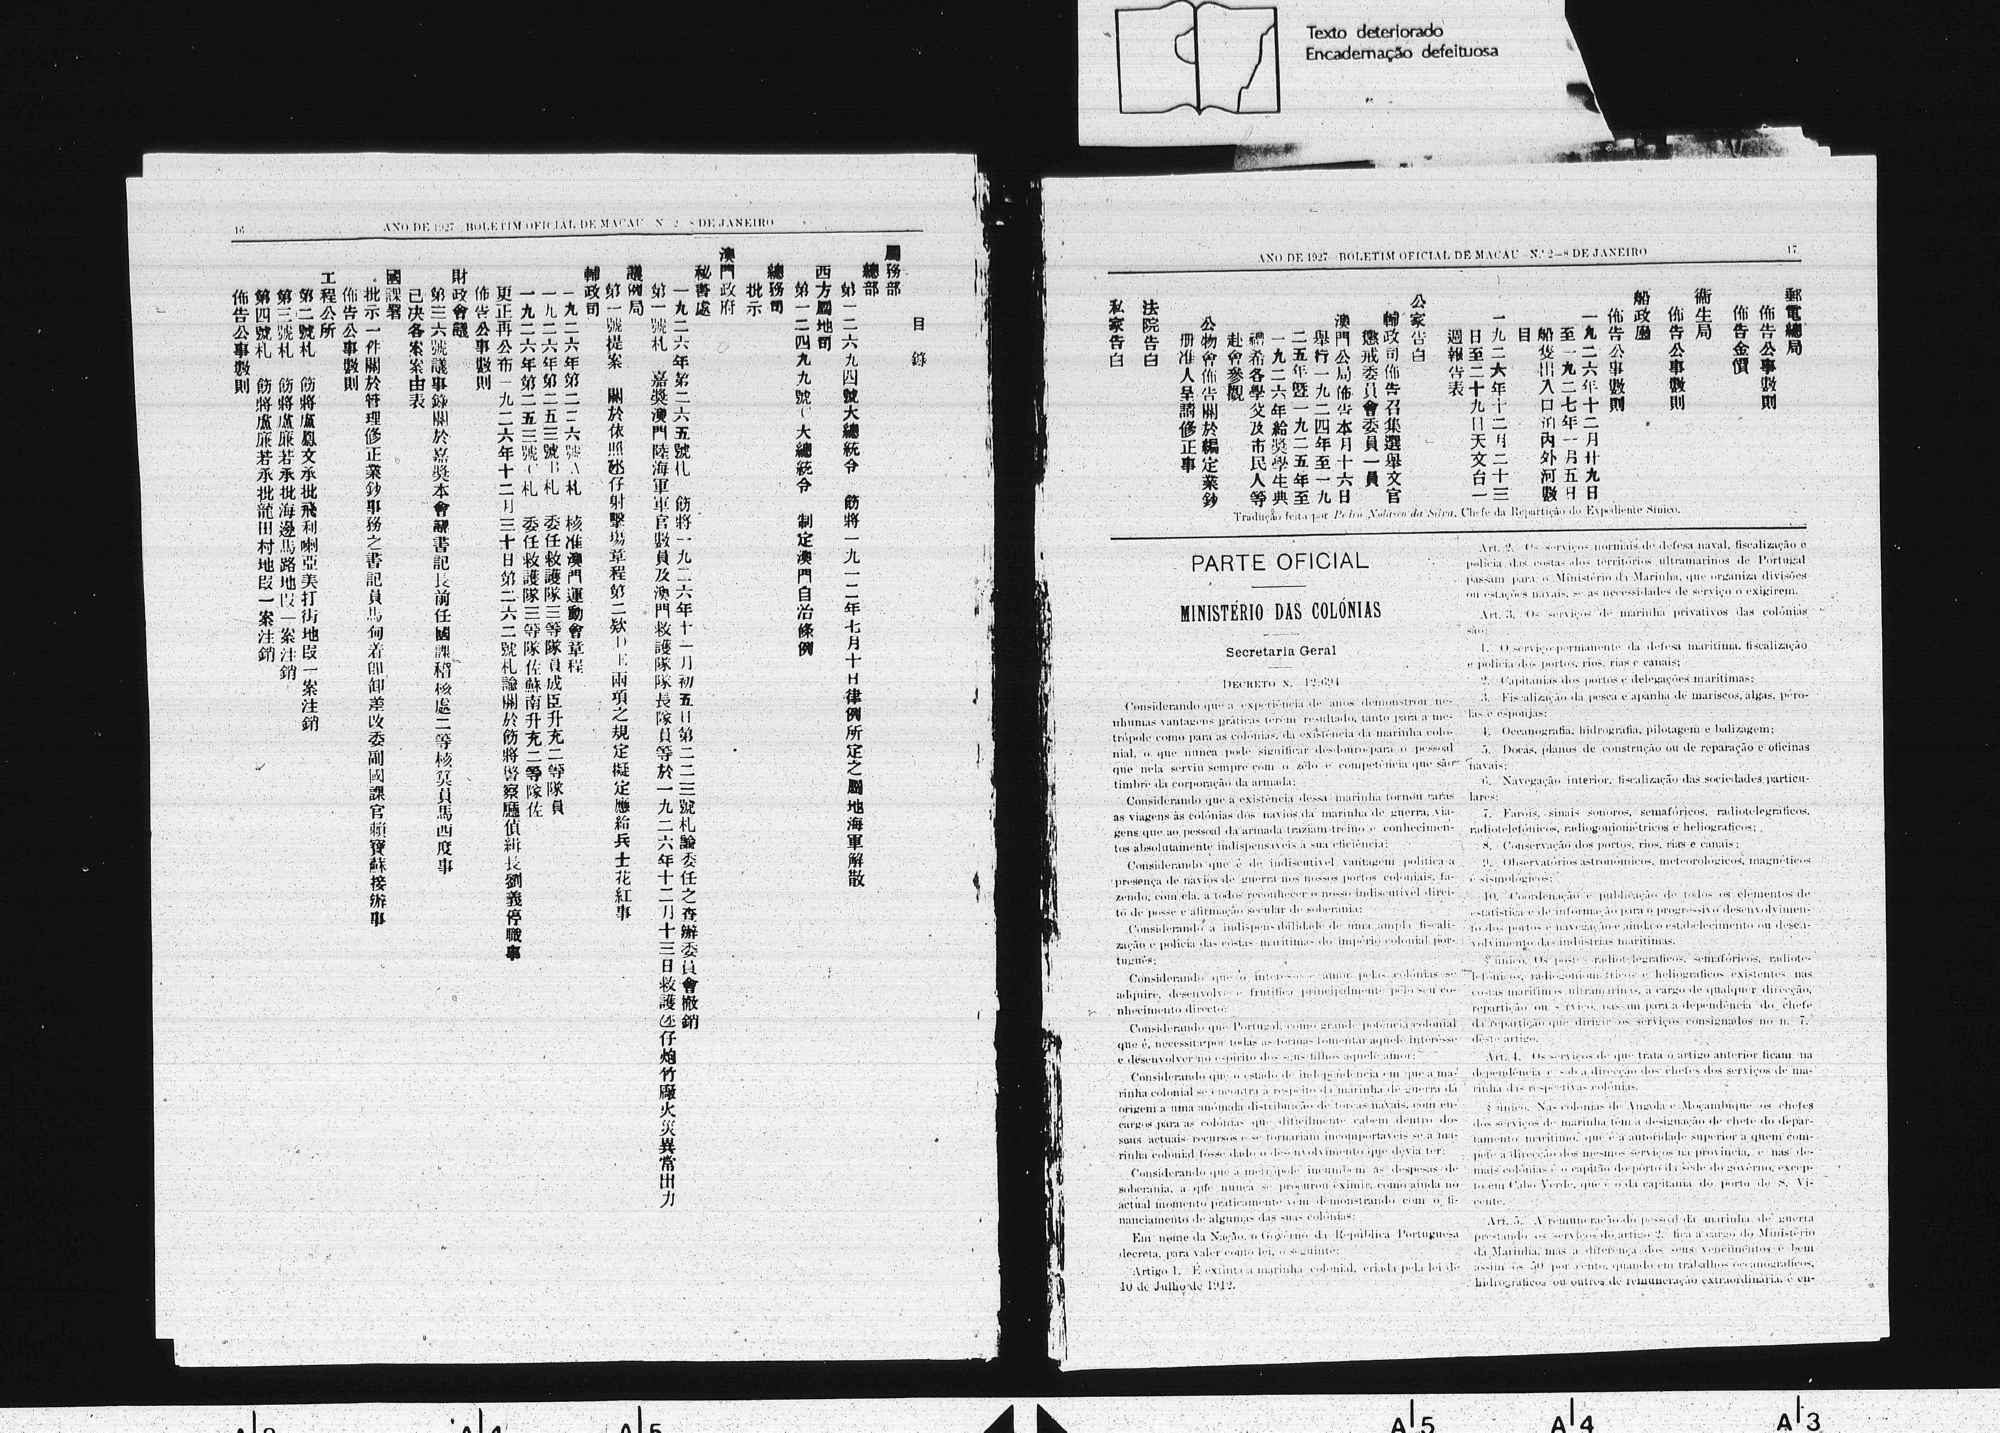 Texto deteriorado
Encadernação defeituosa
16
ANO DE 1927—BOLETIM OFICIAL DE MACAU—N.º 2—8 DE JANEIRO
目錄
屬務部
總部
第一二六九四號大總統令 飭將一九一二年七月十日律例所定之屬地海軍解散
西方屬地司
第一二四九九號C大總統令 制定澳門自治條例
總務司
批示
澳門政府
秘書處
一九二六年第二六五號札 飭將一九二六年十一月初五日第二二三號札諭委任之查辦委員會撤銷
第一號札 嘉獎澳門陸海軍軍官數員及澳門救護隊隊長隊員等於一九二六年十二月十三日救護氹仔炮竹廠火災異常出力
議例局
第一號提案 關於依照氹仔射擊塲章程第二欵D上兩項之規定擬定應給兵士花紅事
輔政司
一九二六年第二三六號A札 核准澳門運動會章程
一九二六年第二五三號B札 委任救護隊三等隊員成臣升充二等隊員
一九二六年第二五三號C札 委任救護隊三等隊佐蘇南升充二等隊佐
更正再公布一九二六年十二月三十日第二六二號札諭關於飭將警察廳偵緝長劉義停職事
佈告公事數則
財政會議
第三六號議事錄關於嘉獎本會議書記長前任國課稽核處二等核算員馬西度事
已决各案案由表
國課署
批示一件關於管理修正業鈔事務之書記員馬向若卸卸差改委副國課官賴寶蘇接辦事
佈告公事數則
工程公所
第二號札 飭將盧鳳文承批飛利喇亞美打街地段一案注銷
第三號札 飭將盧廉若承批海邊馬路地段一案注銷
第四號札 飭將盧廉若承批龍田村地段一案注銷
佈告公事數則
ANO DE 1927—BOLETIM OFICIAL DE MACAU—N.º 2—8 DE JANEIRO
17
郵電總局
佈告公事數則
佈告金價
衞生局
佈告公事數則
船政廳
佈告公事數則
一九二六年十二月廿九日
至一九二七年一月五日
船隻出入口泊內外河數
目
一九二六年十二月二十三
日至二十九日天文台一
週報告表
公家告白
輔政司佈告召集選舉文官
懲戒委員會委員一員
澳門公局佈告本月十六日
舉行一九二四年至一九
二五年暨一九二五年至
一九二六年給獎學生典
禮希各學校及市民人等
赴會參觀
公物會佈告關於編定業鈔
册准人呈請修正事
法院告白
私家告白
Tradução feita por Pedro Nolasco da Silva, Chefe da Repartição do Expediente Sínico.
PARTE OFICIAL
MINISTÉRIO DAS COLÓNIAS
Secretaria Geral
DECRETO N.º 12:694
Considerando que a experiência de anos demonstrou ne-
nhumas vantagens práticas terem resultado, tanto para a me-
trópole como para as colónias, da existência da marinha colo-
nial, o que nunca pode significar desdouro para o pessoal
que nela serviu sempre com o zêlo e competência que são
timbre da corporação da armada;
Considerando que a existência dessa marinha tornou raras
as viagens às colónias dos navios da marinha de guerra, via-
gens que ao pessoal da armada traziam treino e conhecimen-
tos absolutamente indispensáveis à sua eficiência;
Considerando que é de indiscutível vantagem política a
presença de navios de guerra nos nossos portos coloniais, fa-
zendo, com ela, a todos reconhecer o nosso indiscutível direi-
to de posse e afirmação secular de soberania;
Considerando a indispensabilidade de uma ampla fiscali-
zação e polícia das costas marítimas do império colonial por-
tuguês;
Considerando que o interesse e amor pelas colónias se
adquire, desenvolve e frutifica principalmente pelo seu co-
nhecimento directo;
Considerando que Portugal, como grande potência colonial
que é, necessita por todas as formas fomentar aquele interêsse
e desenvolver no espírito dos seus filhos aquele amor;
Considerando que o estado de independência em que a ma-
rinha colonial se encontra a respeito da marinha de guerra dá
origem a uma anómala distribuição de fôrças navais, com en-
cargos para as colónias que dificilmente cabem dentro dos
seus actuais recursos e se tornariam incomportáveis se a ma-
rinha colonial fôsse dado o desenvolvimento que devia ter;
Considerando que à metrópole incumbem as despesas de
soberania, a que nunca se procurou eximir, como ainda no
actual momento praticamente vem demonstrando com o fi-
nanciamento de algumas das suas colónias;
Em nome da Nação, o Govêrno da República Portuguesa
decreta, para valer como lei, o seguinte:
Artigo 1.º É extinta a marinha colonial, criada pela lei de
10 de Julho de 1912.
Art. 2.º Os serviços normais de defesa naval, fiscalização e
polícia das costas dos territórios ultramarinos de Portugal
passam para o Ministério da Marinha, que organiza divisões
ou estações navais, se as necessidades de serviço o exigirem.
Art. 3.º Os serviços de marinha privativos das colónias
são:
1.º O serviço permanente da defesa marítima, fiscalização
e polícia dos portos, rios, rias e canais;
2.º Capitanias dos portos e delegações marítimas;
3.º Fiscalização da pesca e apanha de mariscos, algas, péro-
las e esponjas;
4.º Oceanografia, hidrografia, pilotagem e balizagem;
5.º Docas, planos de construção ou de reparação e oficinas
navais;
6.º Navegação interior, fiscalização das sociedades particu-
lares;
7.º Faróis, sinais sonoros, semafóricos, radiotelegráficos,
radiotelefónicos, radiogoniométricos e heliográficos;
8.º Conservação dos portos, rios, rias e canais;
9.º Observatórios astronómicos, meteorológicos, magnéticos
e sismológicos;
10.º Coordenação e publicação de todos os elementos de
estatística e de informação para o progressivo desenvolvimen-
to dos portos e navegação e ainda o estabelecimento ou desen-
volvimento das indústrias marítimas.
§ único. Os postos radiotelegráficos, semafóricos, radiote-
lefónicos, radiogoniométricos e heliográficos existentes nas
costas marítimas ultramarinas, a cargo de qualquer direcção,
repartição ou serviço, passam para a dependência do chefe
da repartição que dirigir os serviços consignados no n.º 7.º
dêste artigo.
Art. 4.º Os serviços de que trata o artigo anterior ficam na
dependência e sob a direcção dos chefes dos serviços de ma-
rinha das respectivas colónias.
§ único. Nas colónias de Angola e Moçambique os chefes
dos serviços de marinha têm a designação de chefe do depar-
tamento marítimo, que é a autoridade superior a quem com-
pete a direcção dos mesmos serviços na província, e nas de-
mais colónias é o capitão do pôrto da sede do govêrno, excep-
to em Cabo Verde, que é o da capitania do porto de S. Vi-
cente.
Art. 5.º A remuneração do pessoal da marinha de guerra
prestando os serviços do artigo 2.º fica a cargo do Ministério
da Marinha, mas a diferença dos seus vencimentos e bem
assim os 50 por cento, quando em trabalhos oceanográficos,
hidrográficos ou outros de remuneração extraordinária, é en-
A 5
A 4
A 3